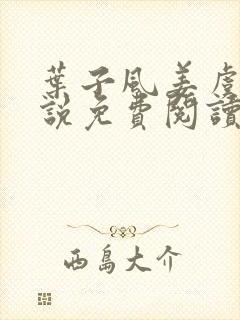 葉子風姜虞
說免費閱讀
西島大介